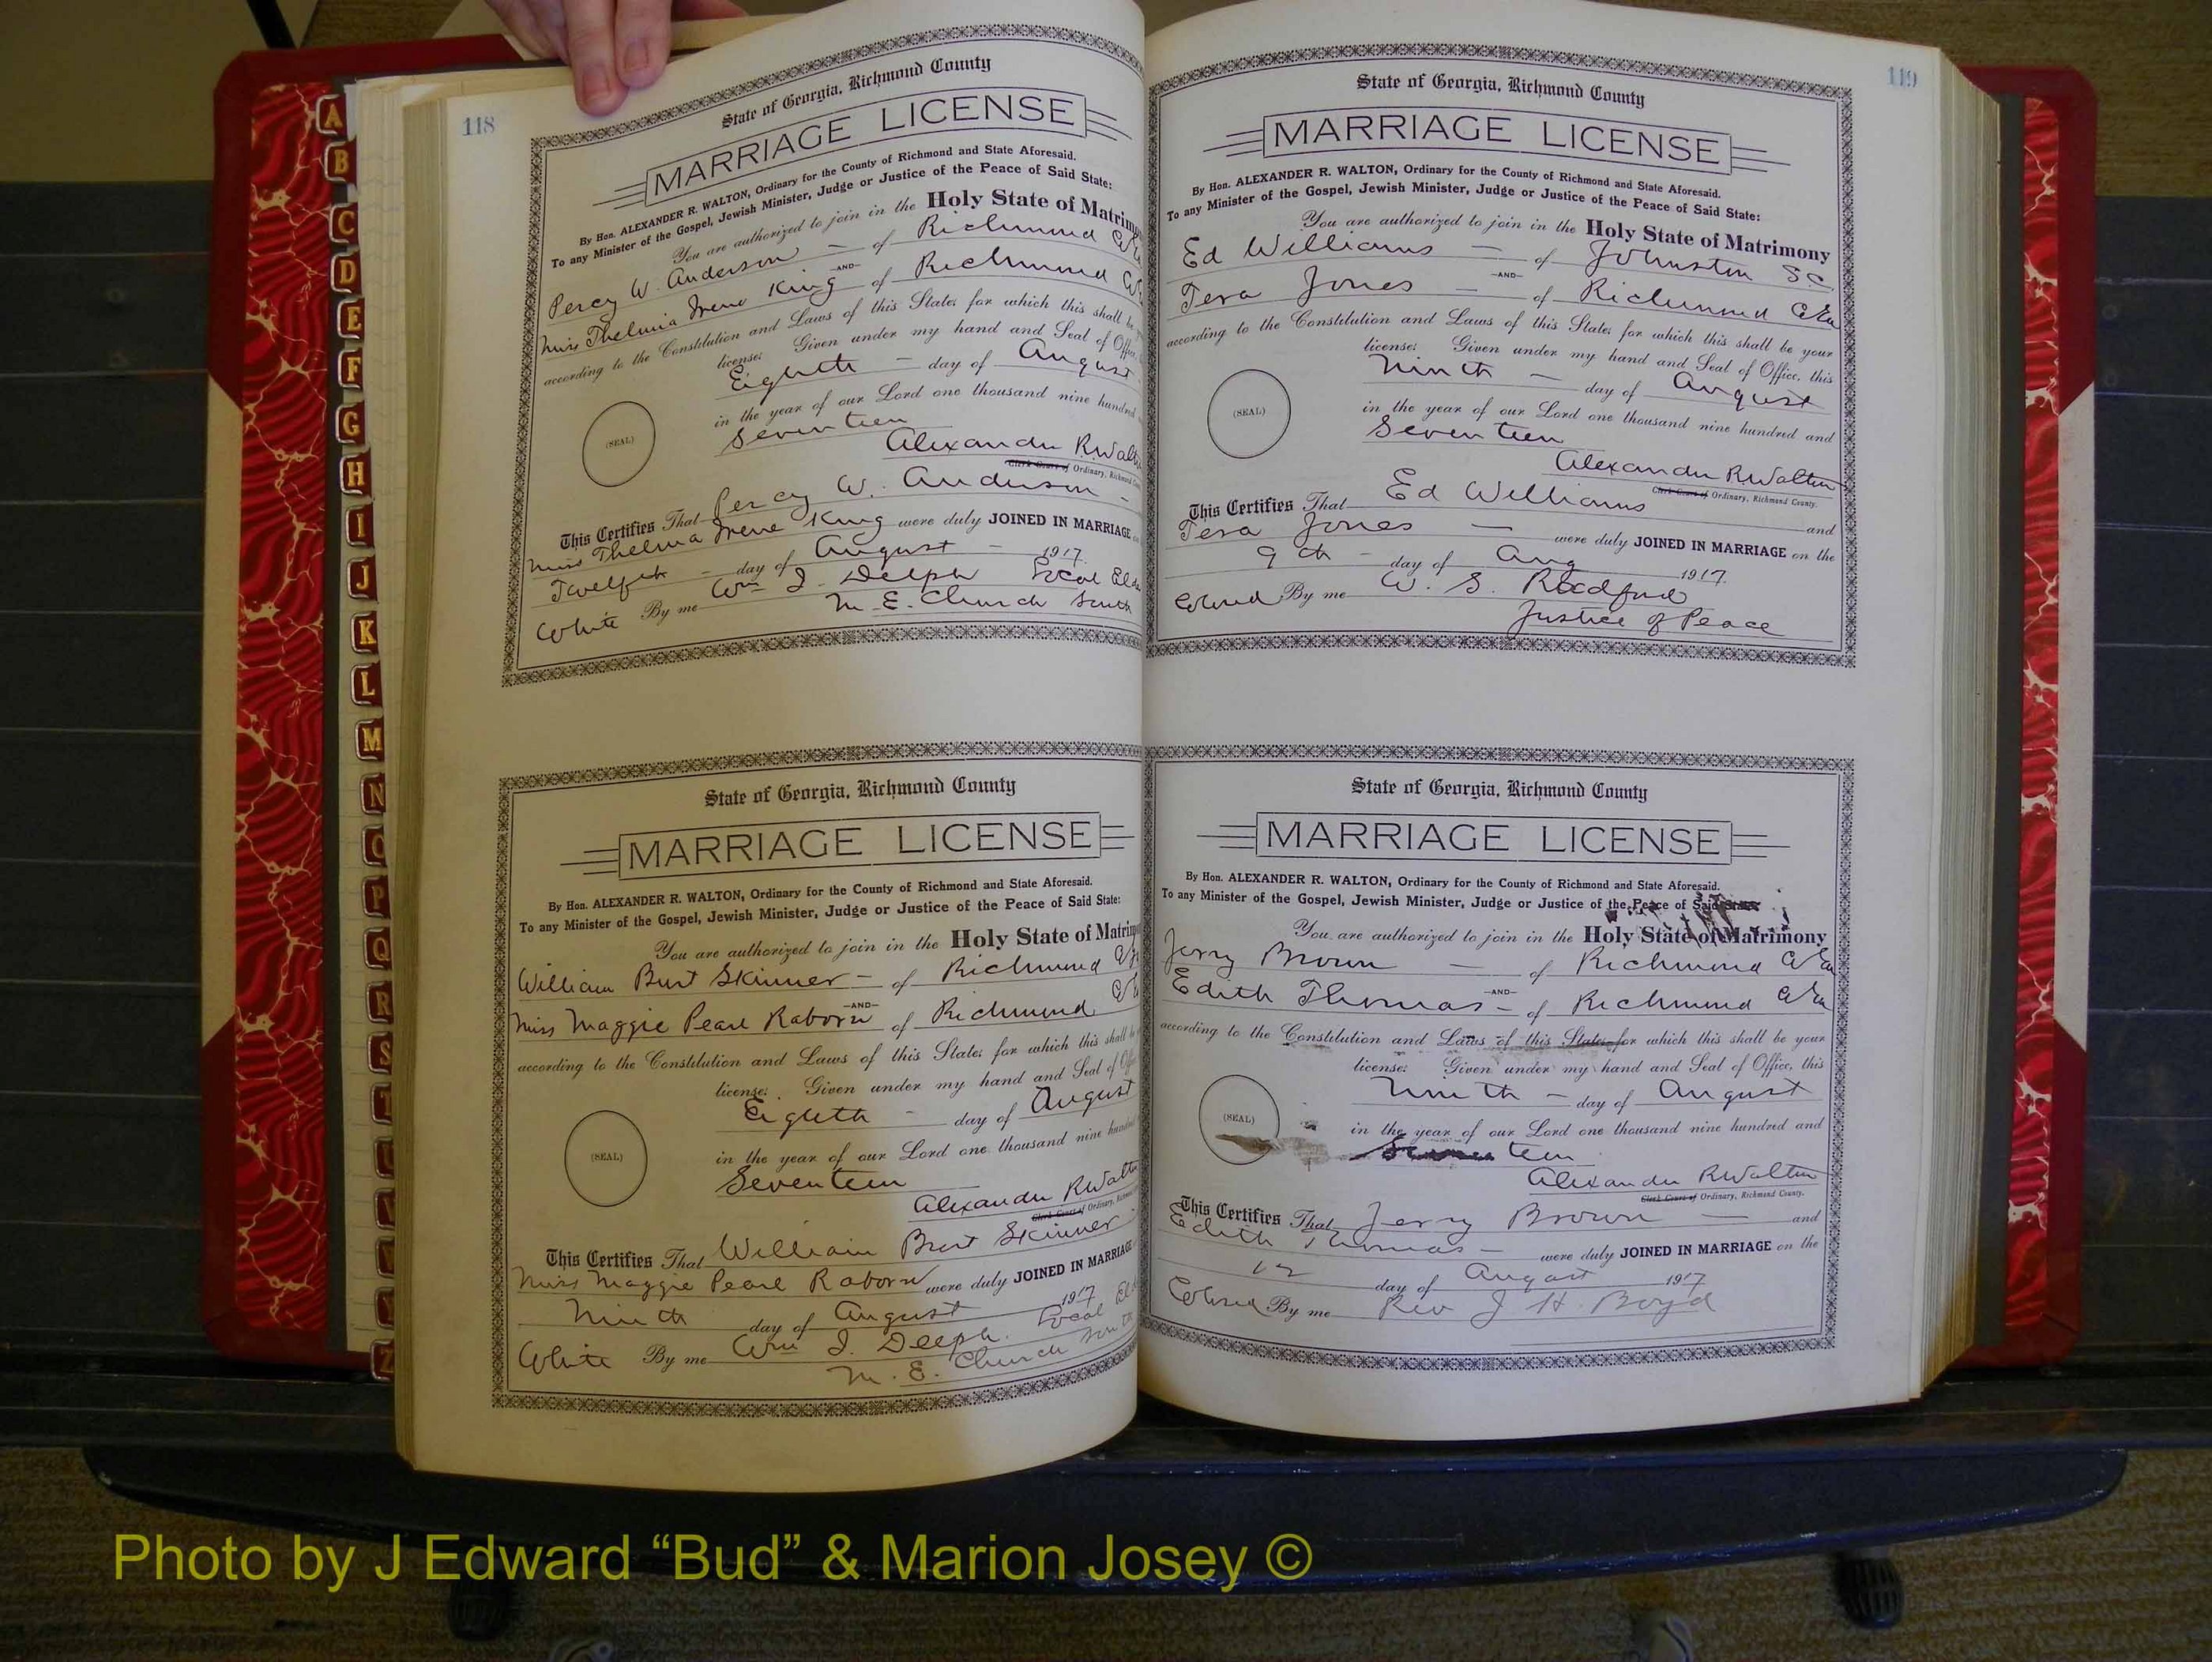 118
State of Georgia, Richmond County
MARRIAGE LICENSE
By Hon. ALEXANDER R. WALTON, Ordinary for the County of Richmond and State Aforesaid.
To any Minister of the Gospel, Jewish Minister, Judge or Justice of the Peace of Said State:
You are authorized to join in the Holy State of Matrimo
Percy W. Anderson — of Richmond
—AND—
Miss Thelma Irene King of Richmond
according to the Constitution and Laws of this State; for which this shall be
license: Given under my hand and Seal of Office,
Eighth — day of August
in the year of our Lord one thousand nine hundred
(SEAL)
Seventeen
Alexander R Walt
Clerk Court of Ordinary, Richmond
This Certifies That Percy W. Anderson —
Miss Thelma Irene King were duly JOINED IN MARRIAGE
Twelfth — day of August — 1917.
White By me Wm J. Delph Local Eld
M. E. Church South
State of Georgia, Richmond County
MARRIAGE LICENSE
By Hon. ALEXANDER R. WALTON, Ordinary for the County of Richmond and State Aforesaid.
To any Minister of the Gospel, Jewish Minister, Judge or Justice of the Peace of Said State:
You are authorized to join in the Holy State of Matrim
William Burt Skinner — of Richmond
—AND—
Miss Maggie Pearl Raborn of Richmond
according to the Constitution and Laws of this State; for which this shall be
license: Given under my hand and Seal of Off
Eighth — day of August
in the year of our Lord one thousand nine hundred
(SEAL)
Seventeen
Alexander R Walt
Clerk Court of Ordinary,
This Certifies That William Burt Skinner
Miss Maggie Pearl Raborn were duly JOINED IN MARRIAGE
Ninth day of August 1917
White By me Wm J. Delph. Local El
M. E. Church South
119
State of Georgia, Richmond County
MARRIAGE LICENSE
By Hon. ALEXANDER R. WALTON, Ordinary for the County of Richmond and State Aforesaid.
To any Minister of the Gospel, Jewish Minister, Judge or Justice of the Peace of Said State:
You are authorized to join in the Holy State of Matrimony
Ed Williams — of Johnston SC
—AND—
Tera Jones — of Richmond
according to the Constitution and Laws of this State; for which this shall be your
license: Given under my hand and Seal of Office, this
Ninth — day of August
in the year of our Lord one thousand nine hundred and
(SEAL)
Seventeen
Alexander R Walton
Clerk Court of Ordinary, Richmond County.
This Certifies That Ed Williams and
Tera Jones — were duly JOINED IN MARRIAGE on the
9th — day of Aug 1917.
Colored By me W. S. Redford
Justice of Peace
State of Georgia, Richmond County
MARRIAGE LICENSE
By Hon. ALEXANDER R. WALTON, Ordinary for the County of Richmond and State Aforesaid.
To any Minister of the Gospel, Jewish Minister, Judge or Justice of the Peace of Said State:
You are authorized to join in the Holy State of Matrimony
Jerry Brown — of Richmond
—AND—
Edith Thomas — of Richmond
according to the Constitution and Laws of this State; for which this shall be your
license: Given under my hand and Seal of Office, this
Ninth — day of August
in the year of our Lord one thousand nine hundred and
(SEAL)
Seventeen
Alexander R Walton
Clerk Court of Ordinary, Richmond County.
This Certifies That Jerry Brown — and
Edith Thomas — were duly JOINED IN MARRIAGE on the
12 day of August 1917
Colored By me Rev J H Boyd
A
B
C
D
E
F
G
H
I
J
K
L
M
N
O
P
Q
R
S
T
U
V
W
Y
Z
Photo by J Edward “Bud” & Marion Josey ©